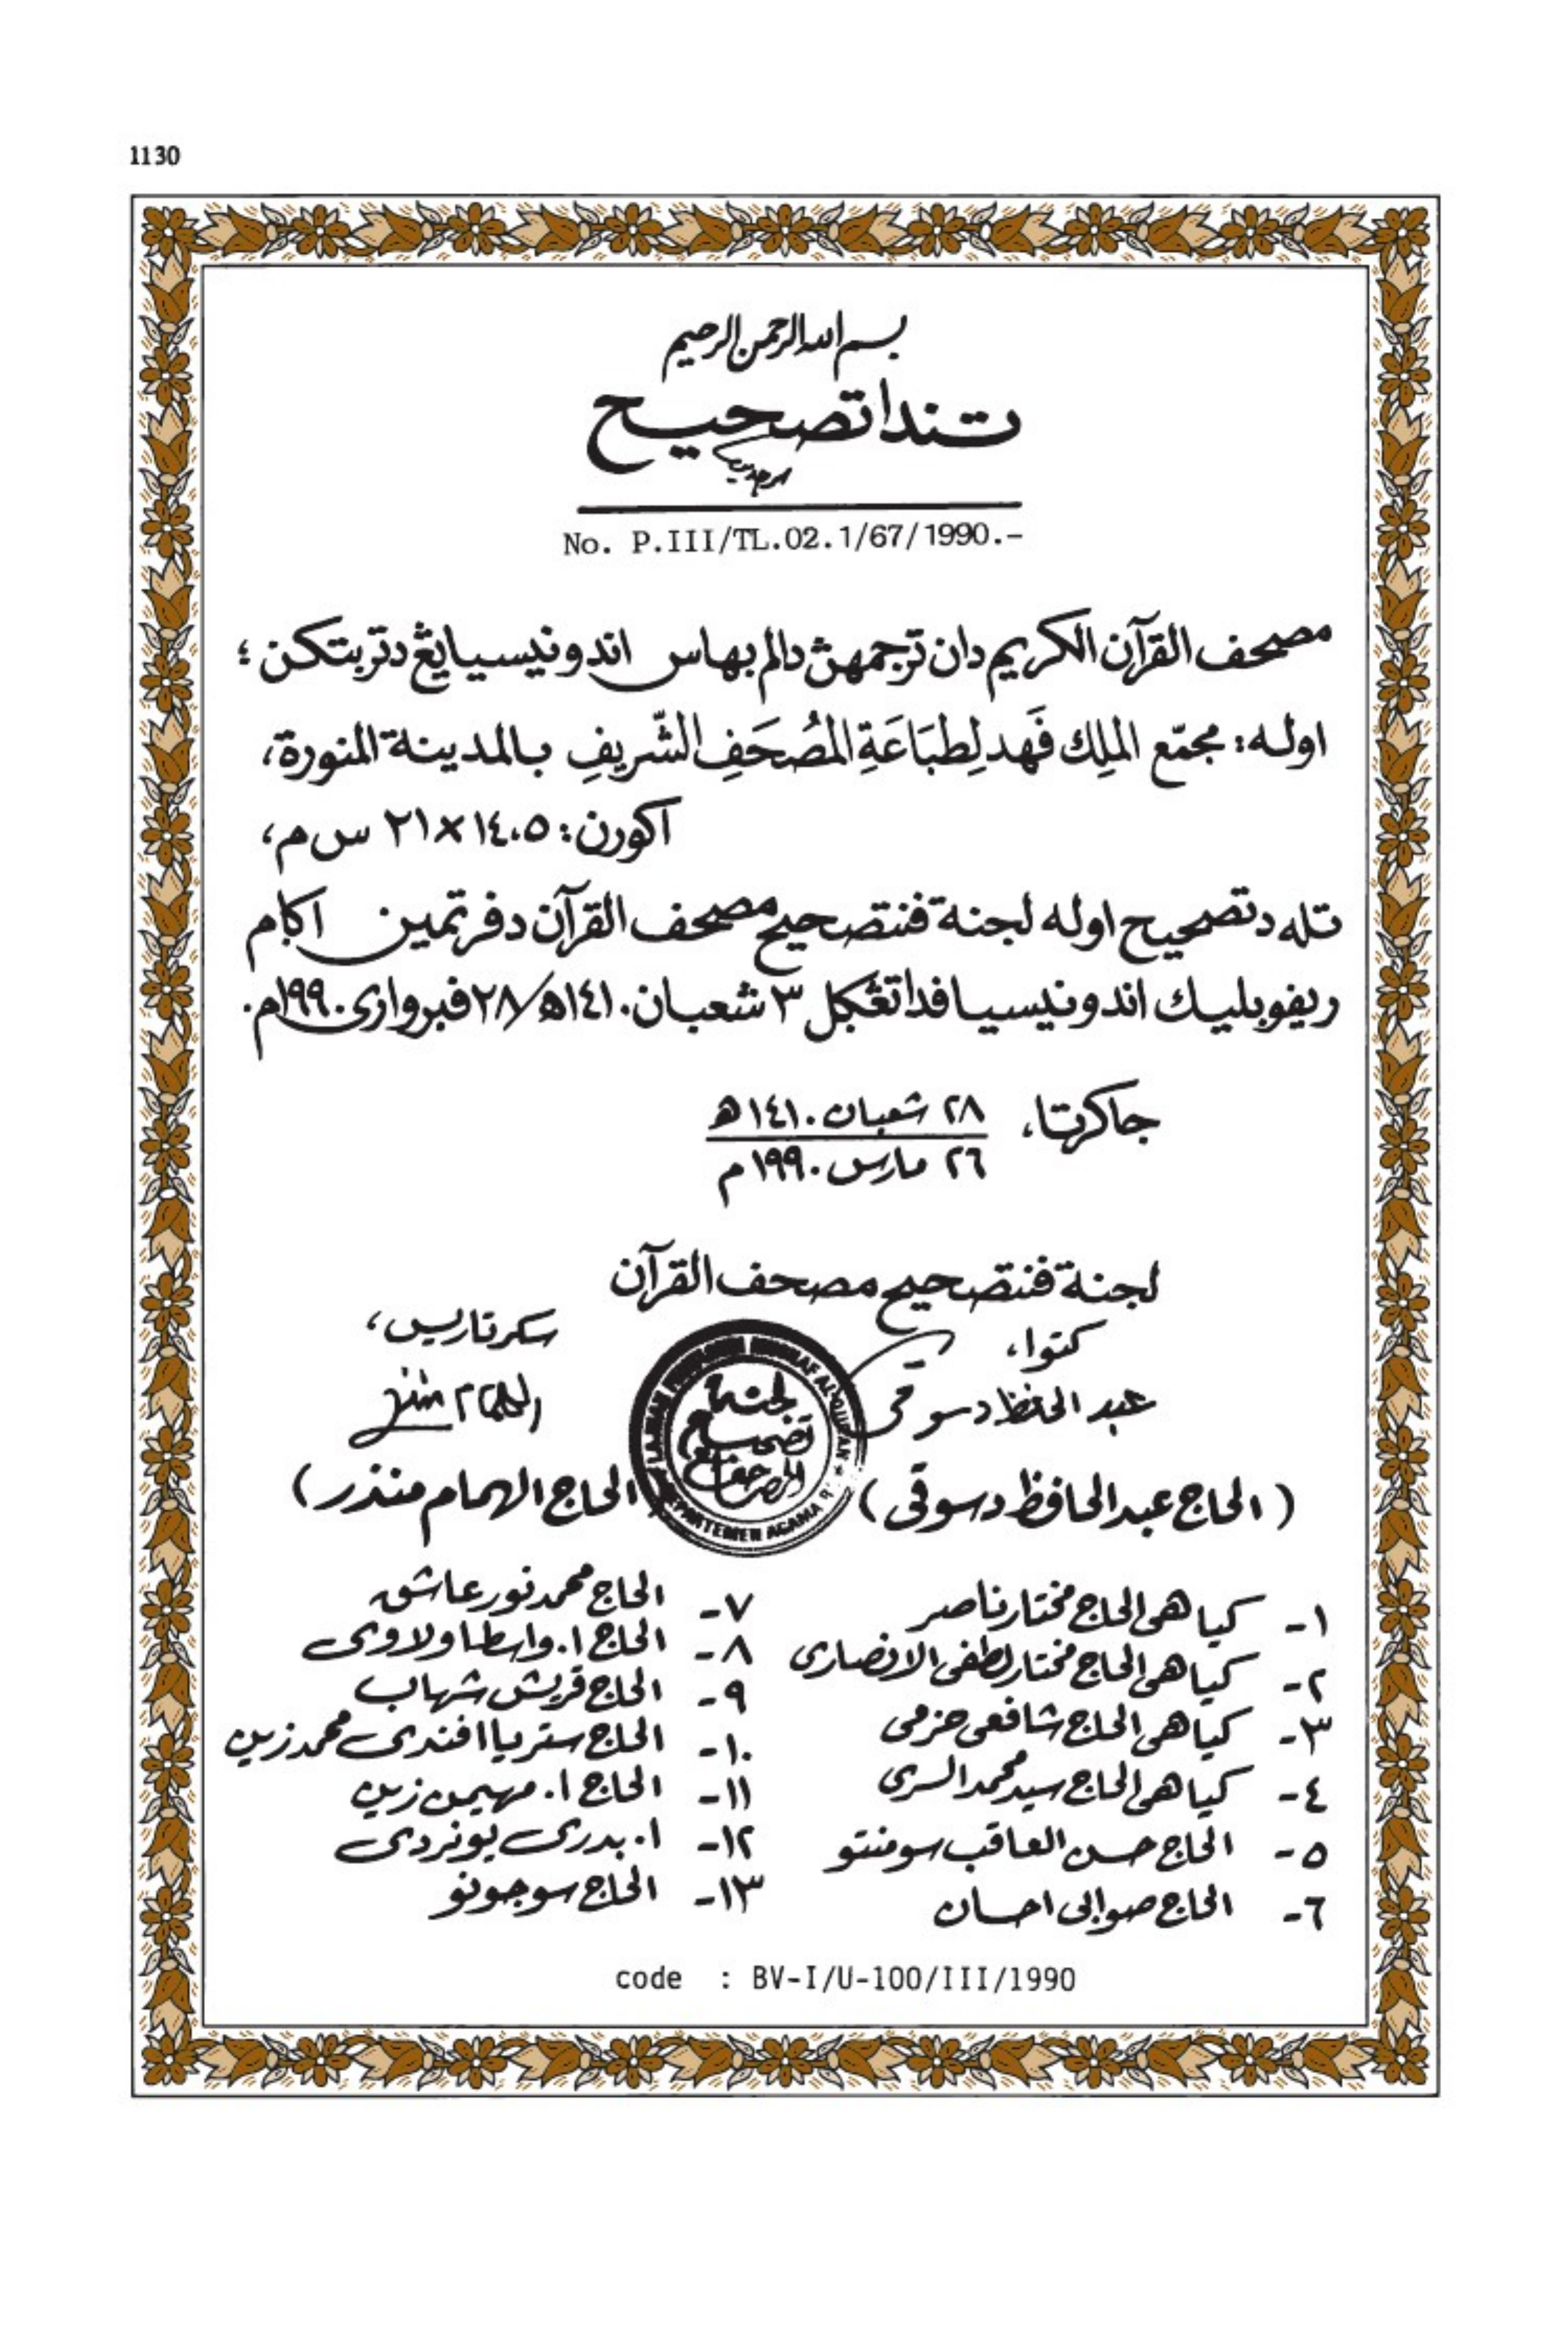 1130
بسم الله الرحمن الرحيم
تندا تصحيح
No. P.III/TL.02.1/67/1990.-
مصحف القرآن الكريم دان ترجمهن دالم بهاس اندونيسيا يڠ دتربتكن ؛
اوله: مجمّع الملِك فَهد لِطبَاعَةِ المُصْحَفِ الشّريفِ بالمدينة المنورة،
اكورن: ١٤،٥ × ٢١ س م،
تله دتصحيح اوله لجنة فنتصحيح مصحف القرآن دفرتمين اݢام
ريفوبليك اندونيسيا فدا تڠݢل ٣ شعبان ١٤١٠ھ/ ٢٨ فبرواری ١٩٩٠م.
جاكرتا، ٢٨ شعبان ١٤١٠ھ
٢٦ مارس ١٩٩٠ م
لجنة فنتصحيح مصحف القرآن
كتوا، سكرتاريس،
عبد الحفظ دسوقی
(الحاج عبد الحافظ دسوقی) الحاج الهمام منذر)
لجنة
تصحيح
المصاحف
١- كياهی الحاج مختار ناصر
٢- كياهی الحاج مختار لطفی الانصاری
٣- كياهی الحاج شافعی حزمی
٤- كياهی الحاج سيد محمد السری
٥- الحاج حسن العاقب سومنتو
٦- الحاج صوابی احسان
٧- الحاج محمد نور عاشق
٨- الحاج ا. واسطا ولاوی
٩- الحاج قريش شهاب
١٠- الحاج ستريا افندی محمد زين
١١- الحاج ا. مهيمن زين
١٢- ا. بدری يونردی
١٣- الحاج سوجونو
code : BV-I/U-100/III/1990